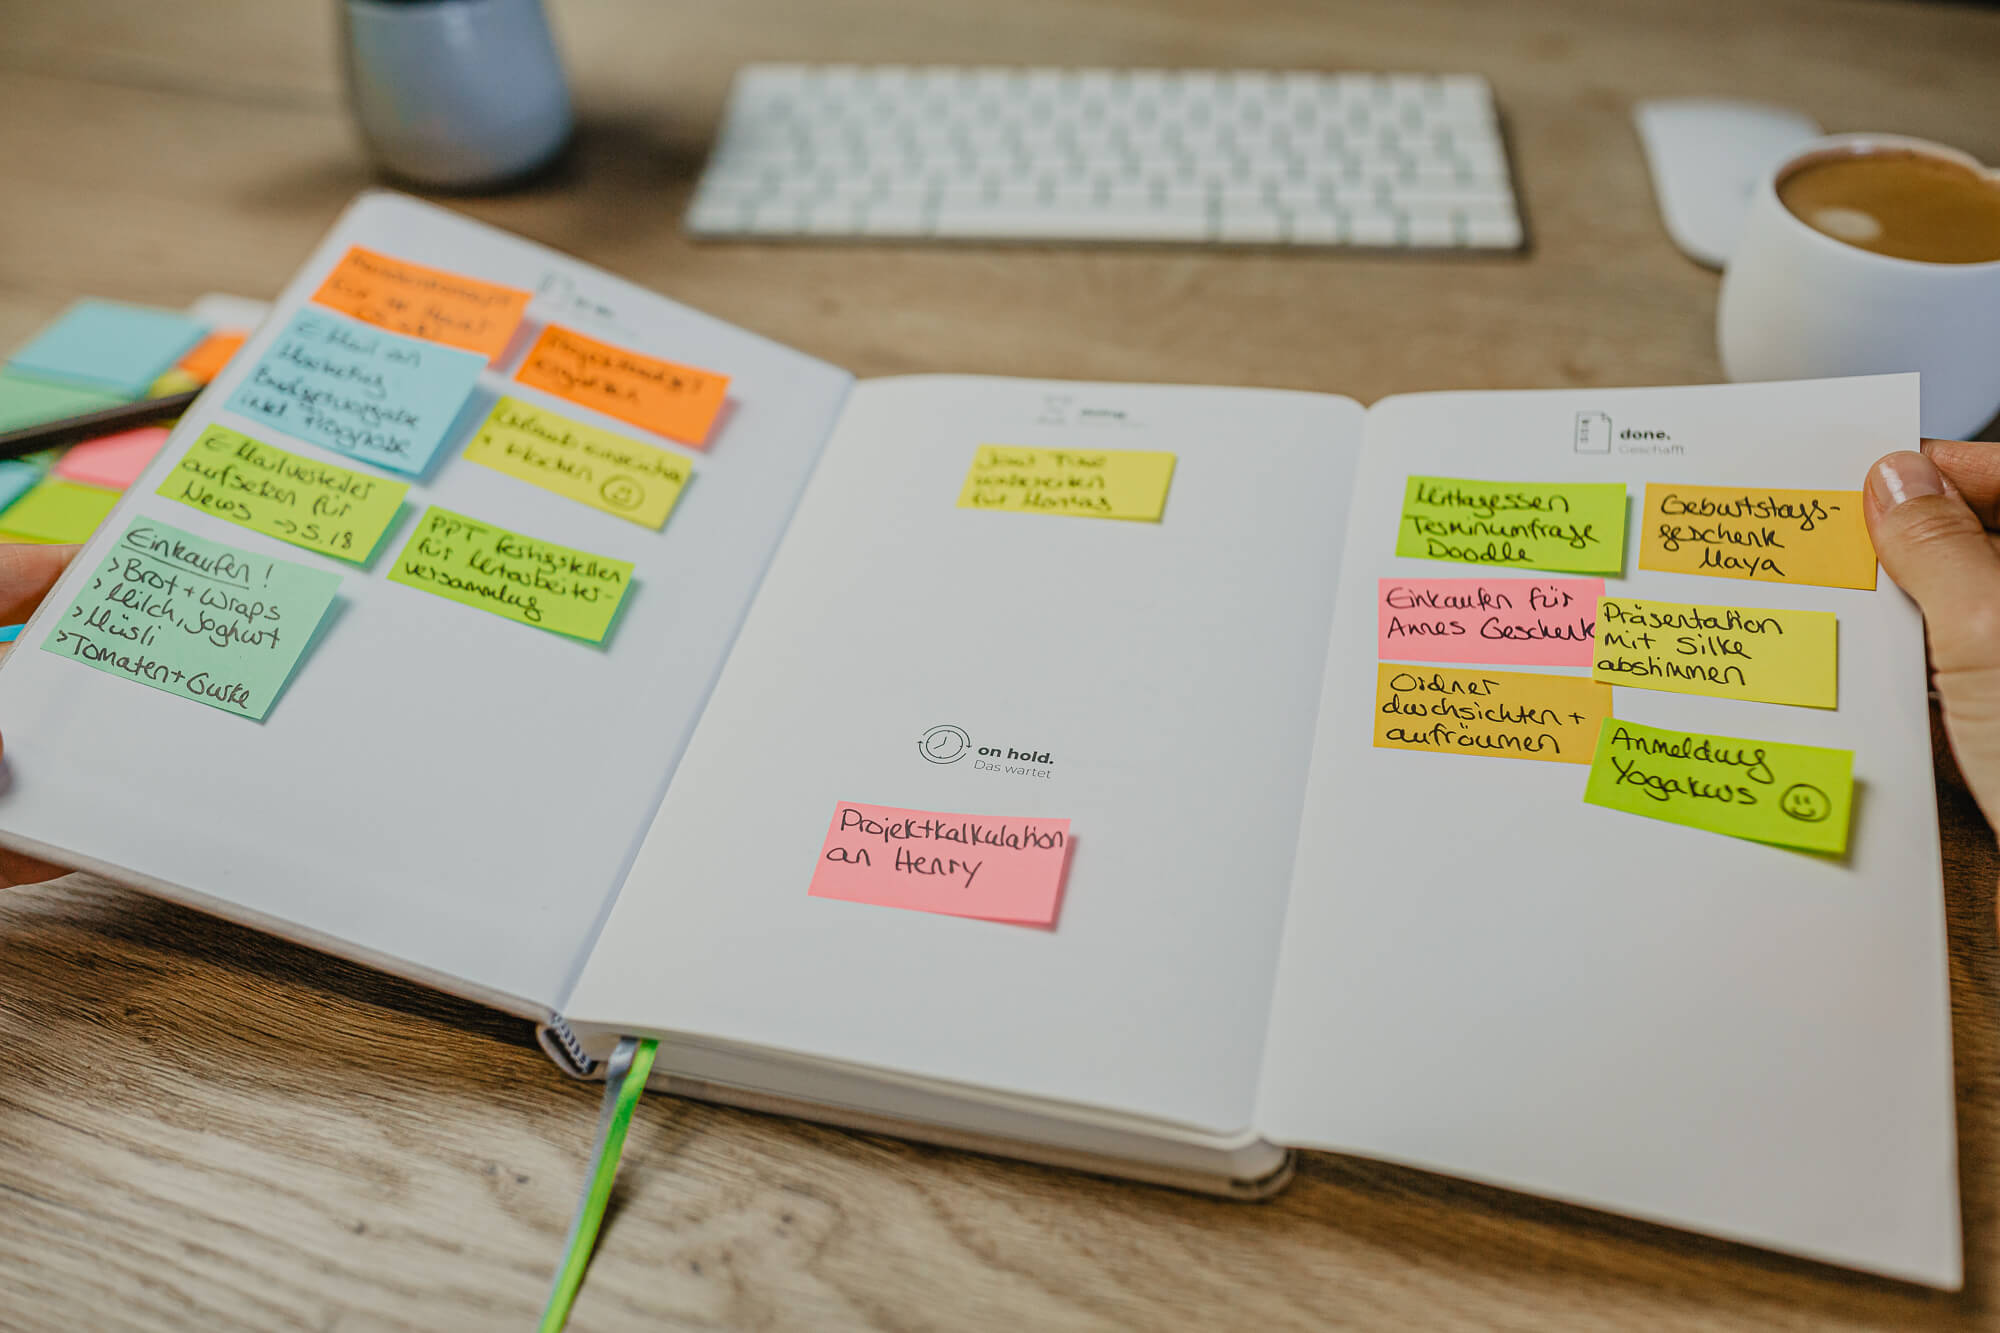 E-Mail an
Marketing
Budgetvorgabe
inkl. Prognose
E-Mailverteiler
aufsetzen für
News → S. 18
Einkaufen!
> Brot + Wraps
> Milch, Joghurt
> Müsli
> Tomaten + Gurke
Urlaub einreichen
PPT fertigstellen
für Mitarbeiter-
versammlung
doing.
für Montag
on hold.
Das wartet
Projektkalkulation
an Henry
done.
Geschafft
Mittagessen
Terminumfrage
Doodle
Geburtstags-
geschenk
Maya
Einkaufen für
Annes Geschenk
Präsentation
mit Silke
abstimmen
Ordner
durchsichten +
aufräumen
Anmeldung
Yogakurs